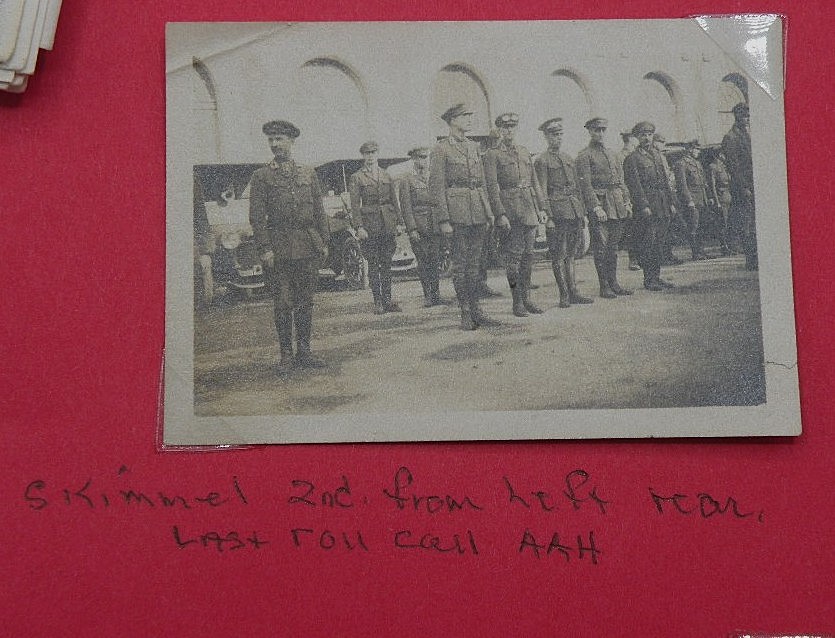 Skimmel 2nd. from Left rear.
LAst roll call AAH